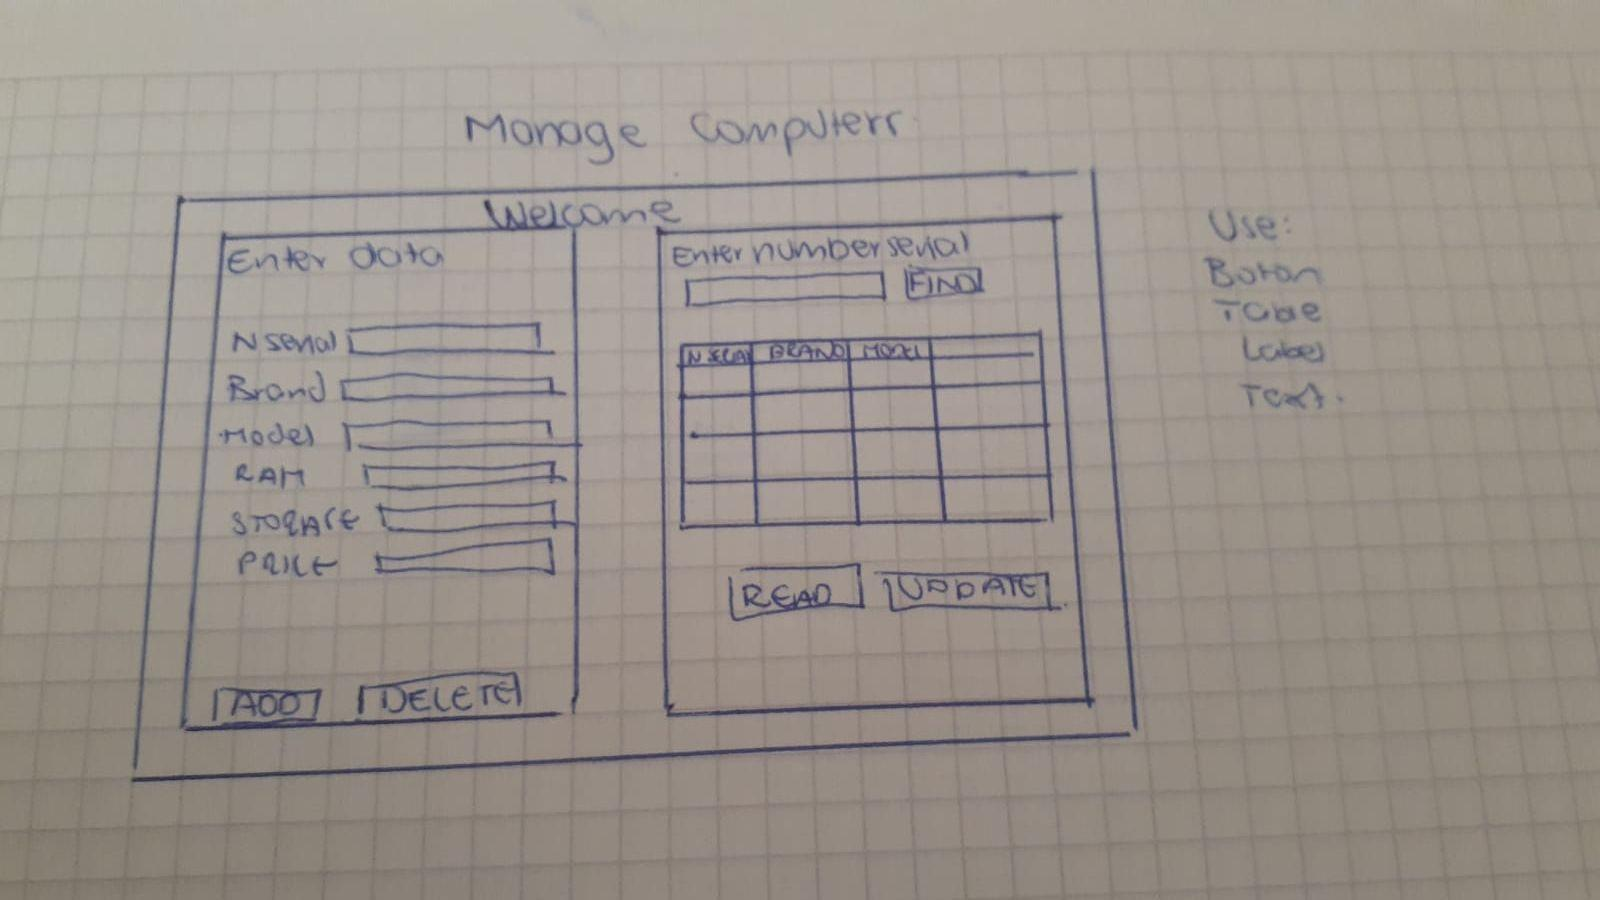 Manage Computers
Welcome
Enter data
N serial
Brand
Model
RAM
STORAGE
PRICE
ADD DELETE
Enter number serial
FIND
N SERIAL BRAND MODEL
READ UPDATE
Use:
Boton
Table
Label
Text.